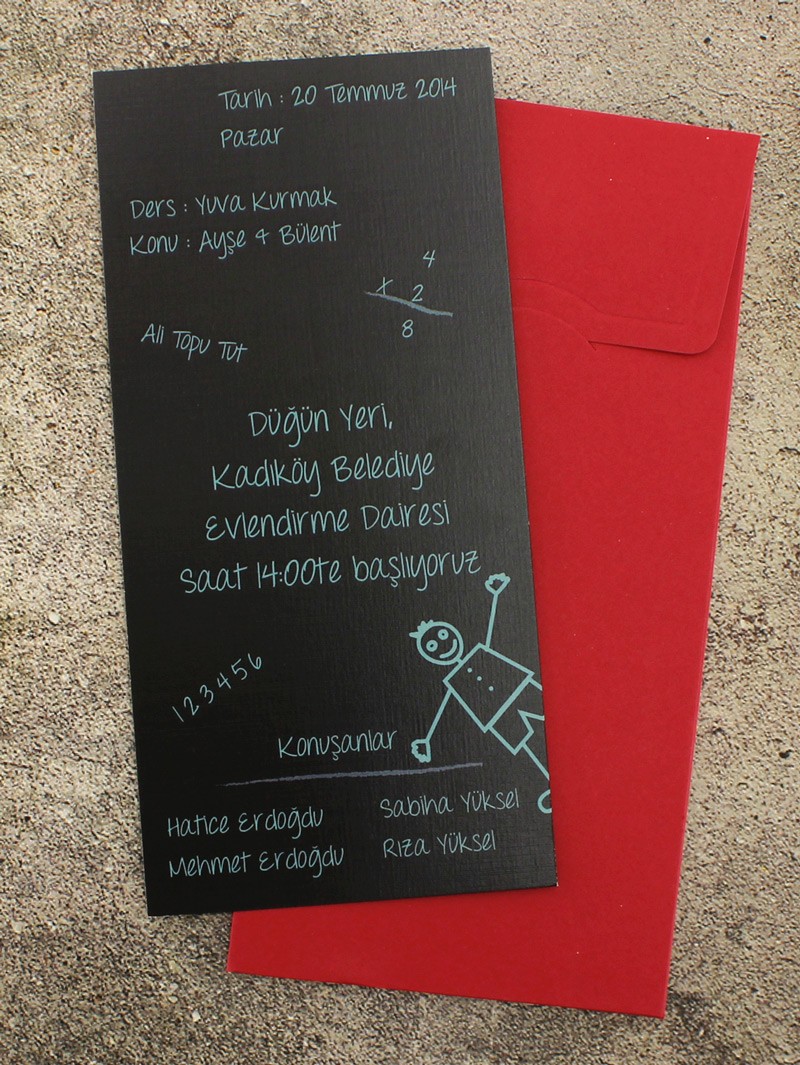 Tarih : 20 Temmuz 2014
Pazar
Ders : Yuva Kurmak
Konu : Ayşe & Bülent
4
x 2
8
Ali Topu Tut
Düğün Yeri,
Kadıköy Belediye
Evlendirme Dairesi
Saat 14:00te başlıyoruz
1 2 3 4 5 6
Konuşanlar
Hatice Erdoğdu Sabiha Yüksel
Mehmet Erdoğdu Rıza Yüksel